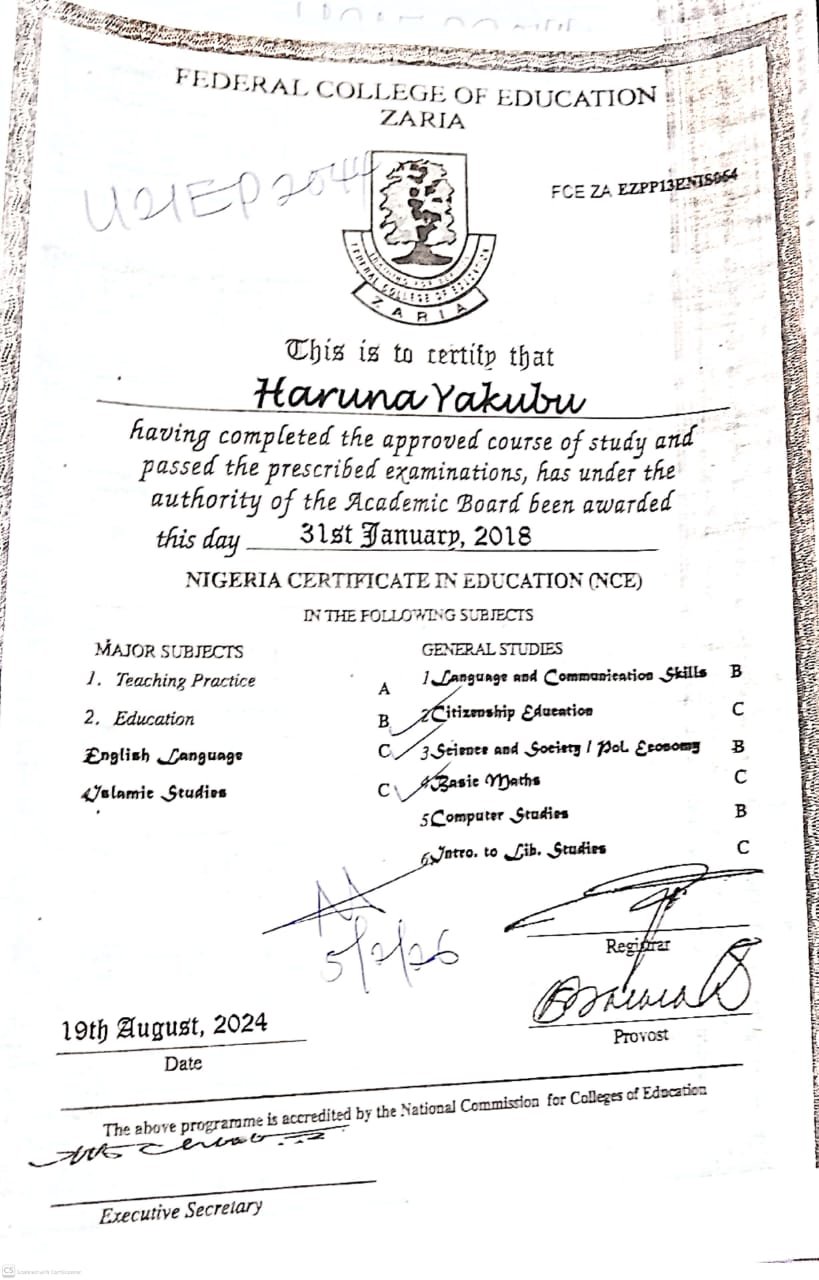 FEDERAL COLLEGE OF EDUCATION
ZARIA
U21EP2044
FCE ZA EZPP13ENIS064
FEDERAL COLLEGE OF EDUCATION
ZARIA
This is to certify that
Haruna Yakubu
having completed the approved course of study and
passed the prescribed examinations, has under the
authority of the Academic Board been awarded
this day 31st January, 2018
NIGERIA CERTIFICATE IN EDUCATION (NCE)
IN THE FOLLOWING SUBJECTS
MAJOR SUBJECTS
1. Teaching Practice A
2. Education B
English Language C
4 Islamic Studies C
GENERAL STUDIES
1 Language and Communication Skills B
2 Citizenship Education C
3 Science and Society / Pol. Economy B
4 Basic Maths C
5 Computer Studies B
6 Intro. to Lib. Studies C
5/2/26
Registrar
Provost
19th August, 2024
Date
The above programme is accredited by the National Commission for Colleges of Education
Executive Secretary
CS Scanned with CamScanner